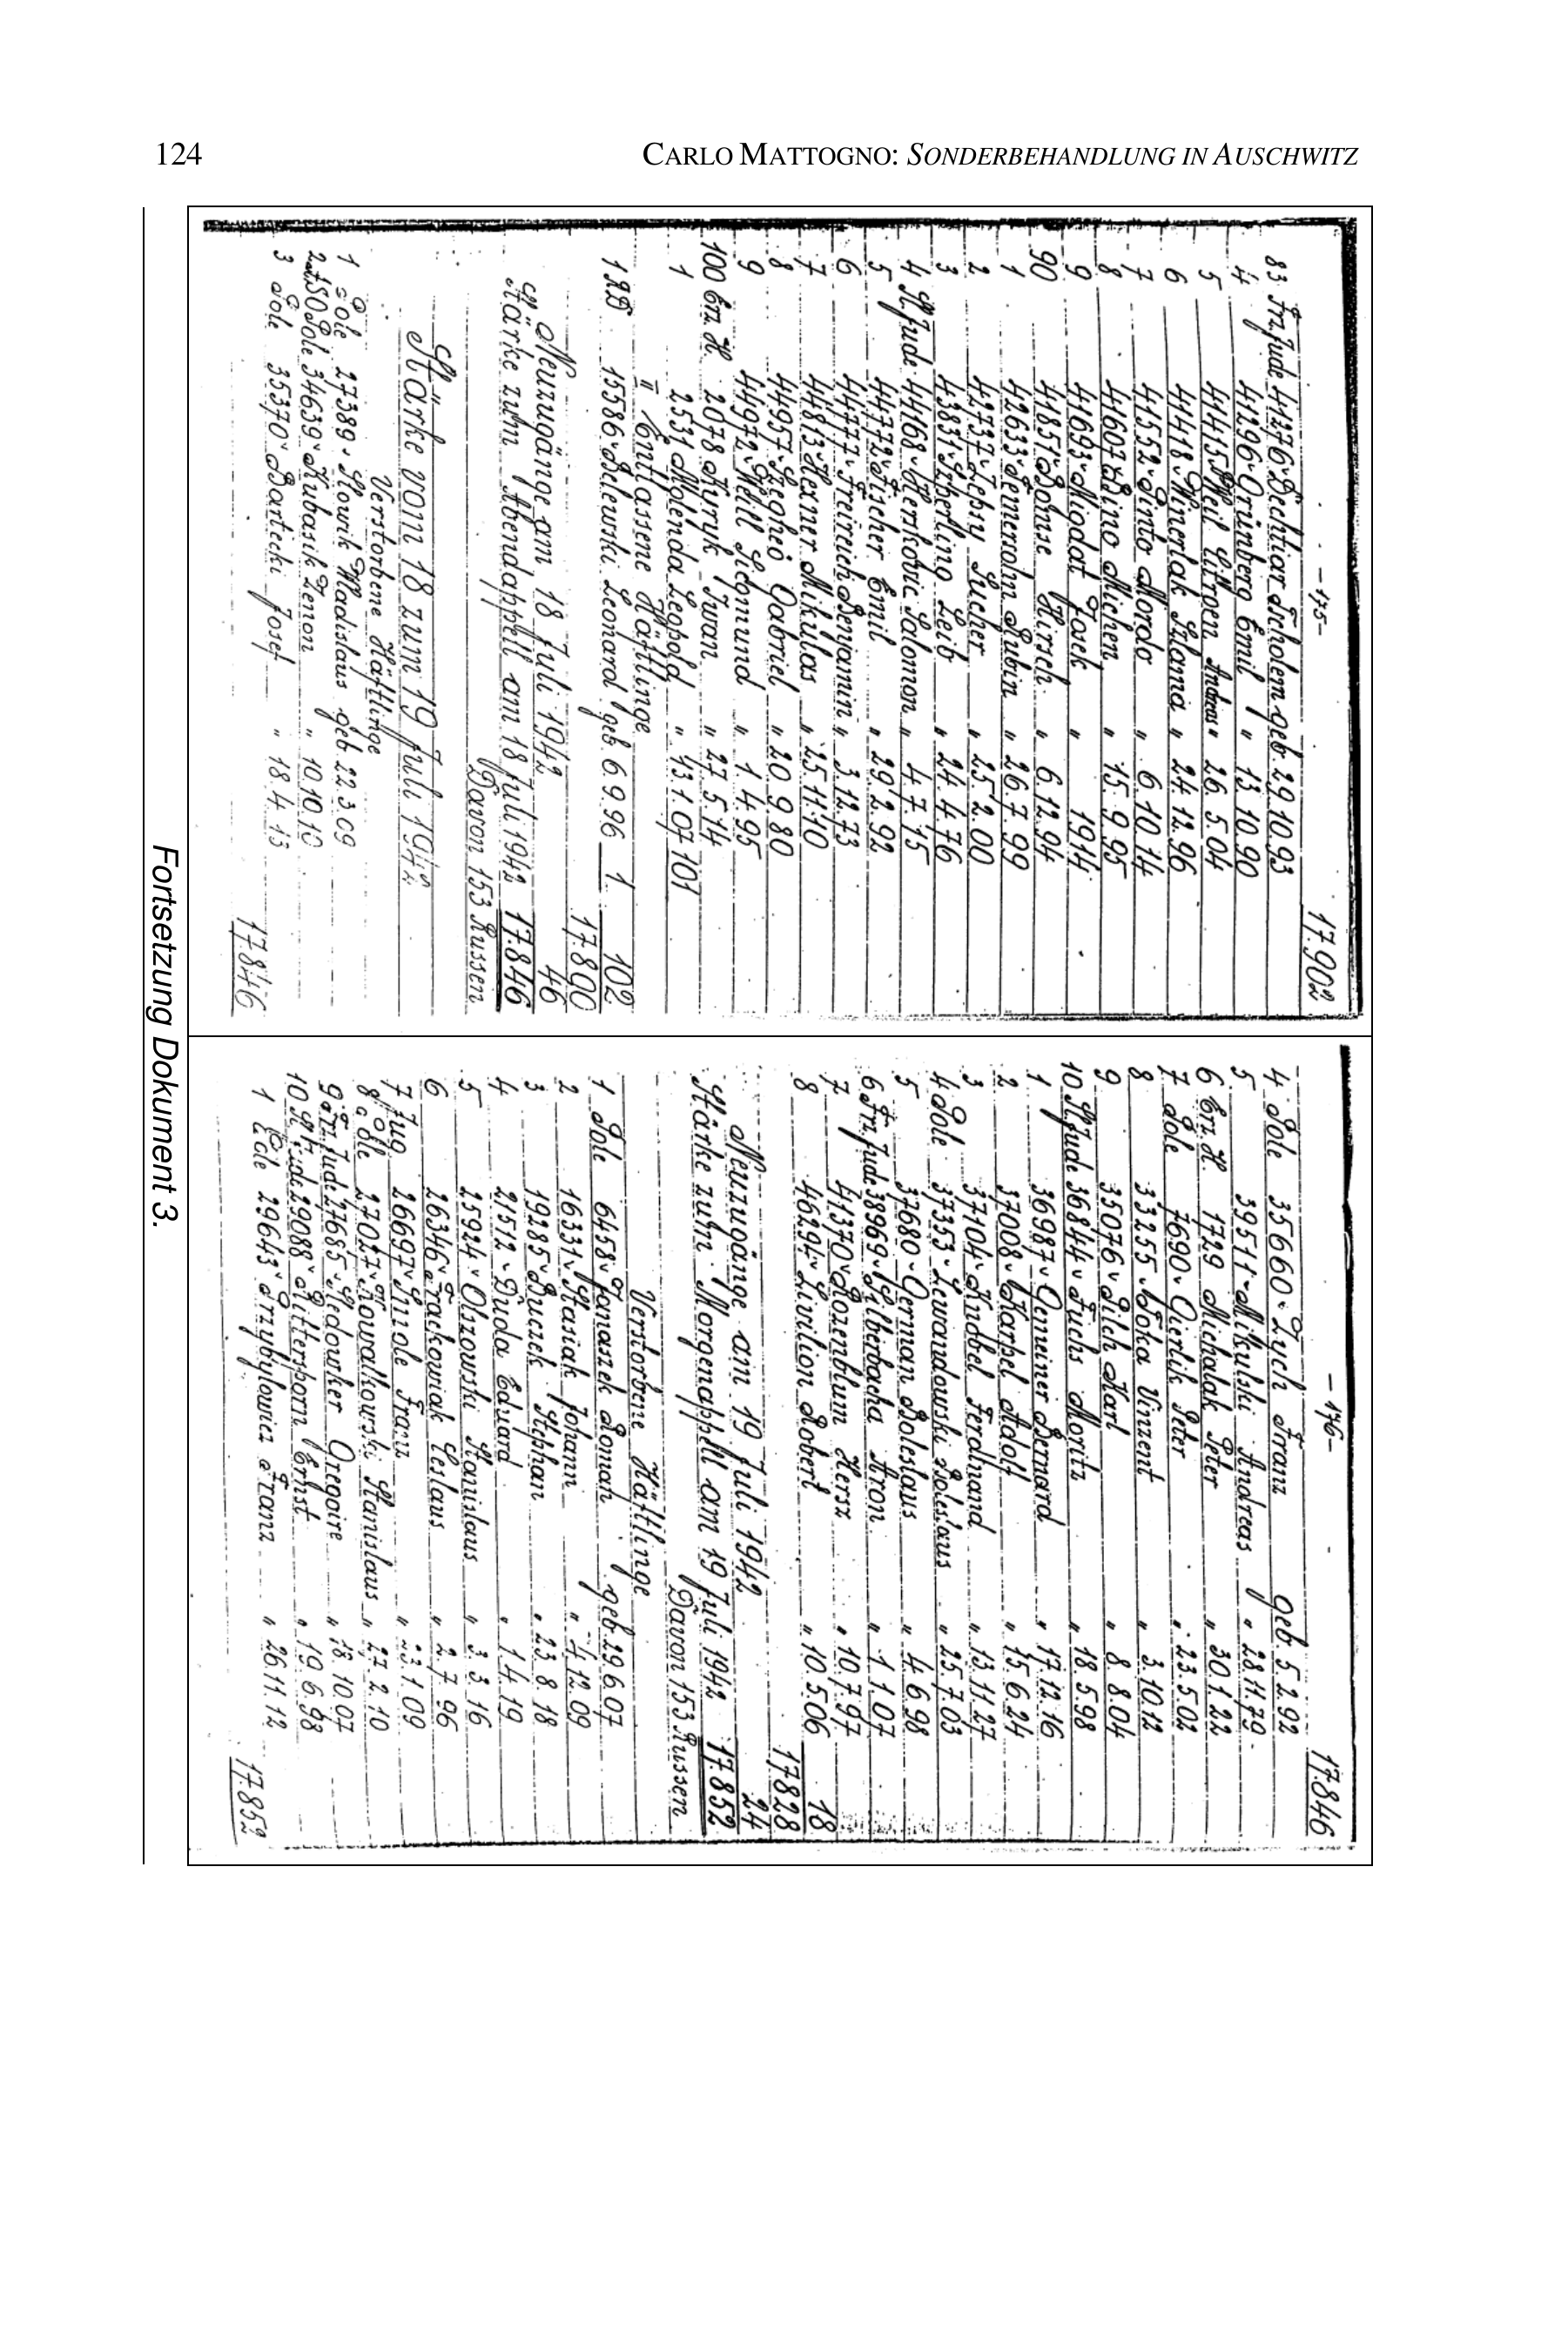 124
CARLO MATTOGNO: SONDERBEHANDLUNG IN AUSCHWITZ
-175-
17.902
83 Frz. Jude 41276 Dechtiar Scholem geb. 29.10.93
4 41296 Grünberg Emil " 13.10.90
5 41415 Weil Citroen Andreas " 26.5.04
6 41418 Winerlak Szlama " 24.12.96
7 41552 Pinto Mordo " 6.10.14
8 41607 Beino Michen " 15.9.95
9 41693 Niodat Josek " 1914
90 41851 Bomse Hirsch " 6.12.94
1 42633 Femerohn Rubin " 26.7.99
2 42737 Lebry Lucher " 25.2.00
3 43831 Sperling Leib " 24.4.76
4 Sl. Jude 44168 Herskovic Salomon " 4.7.15
5 44772 Fischer Emil " 29.2.92
6 44777 Freireich Benjamin " 3.12.73
7 44813 Hexner Mikulas " 25.11.10
8 44957 Szegheö Gabriel " 20.9.80
9 44972 Weill Sigmund " 1.4.95
100 Erz. H. 2078 Kuryk Iwan " 27.5.14
1 2531 Molenda Leopold " 13.1.07 101
Entlassene Häftlinge
15586 Belewski Leonard geb. 6.9.96 1 102
17.800
Neuzugänge am 18 Juli 1942 46
Stärke zum Abendappell am 18 Juli 1942 17.846
Davon 153 Russen
Stärke vom 18 zum 19 Juli 1942
Verstorbene Häftlinge
1 Pole 27389 Slowik Wladislaus geb. 22.3.09
2 Pole 34639 Kubasik Zenon " 10.10.10
3 Pole 35370 Bartecki Josef " 18.4.13
17.846
-176-
17.846
4 Pole 35660 Zych Franz geb. 5.2.92
5 39511 Mikulski Andreas " 28.11.79
6 Erz. H 1729 Michalak Peter " 30.1.22
7 Pole 7690 Gierlik Peter " 23.5.02
8 33255 Foka Vinzent " 3.10.12
9 35076 Pilch Karl " 8.8.04
10 Sl. Jude 36844 Fuchs Moritz " 18.5.98
1 36987 Gemeiner Bernard " 17.12.16
2 37008 Karpel Adolf " 15.6.24
3 37104 Knobel Ferdinand " 13.11.27
4 Pole 37353 Lewandowski Boleslaus " 25.7.03
5 37680 German Boleslaus " 4.6.98
6 Frz. Jude 38969 Silberbacha Aron " 1.1.07
7 41370 Rozenblum Hersz " 10.7.97
8 46294 Livilion Robert " 10.5.06 18
17.828
Neuzugänge am 19 Juli 1942 24
Stärke zum Morgenappell am 19 Juli 1942 17.852
Davon 153 Russen
Verstorbene Häftlinge
1 Pole 6458 Janaszek Roman geb. 29.6.07
2 16331 Stasiak Johann " 4.12.09
3 19285 Buczek Stephan " 23.8.18
4 21512 Duda Eduard " 1.4.19
5 25924 Olszowski Stanislaus " 3.3.16
6 26346 Frackowiak Ceslaus " 2.7.96
7 Jug 26697 Smole Franz " 23.1.09
8 Pole 27027 Nowralkowski Stanislaus " 27.2.10
9 Frz. Jude 27685 Sledowker Gregoire " 18.10.07
10 29088 Ritterporn Ernst " 19.6.98
1 Pole 29643 Przybylowicz Franz " 26.11.12
17.852
Fortsetzung Dokument 3.